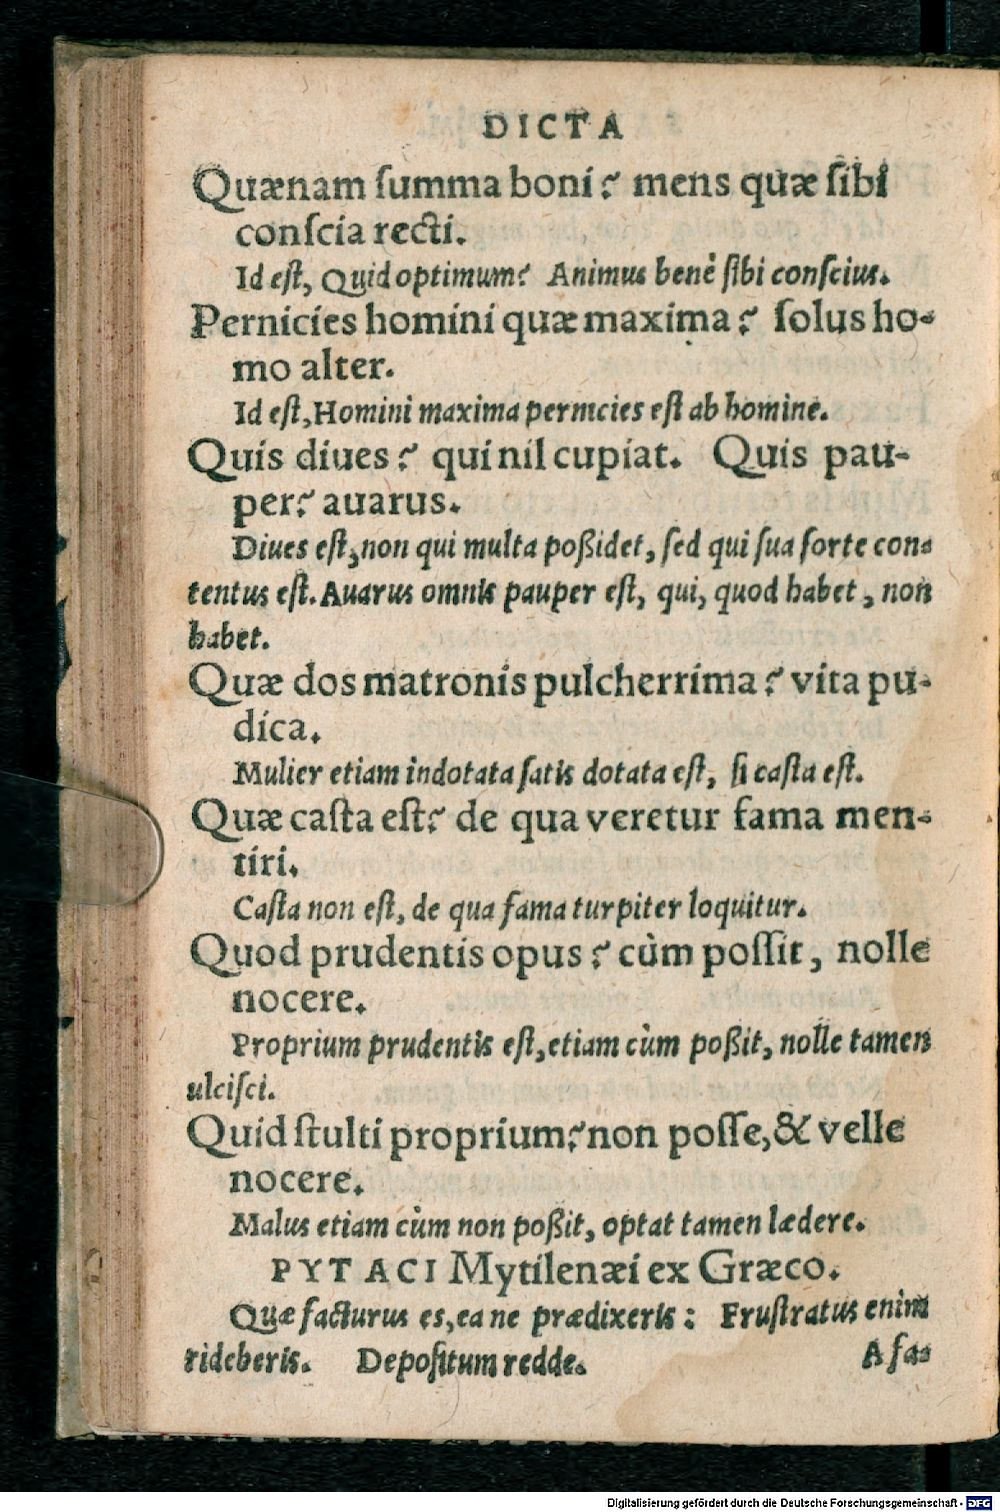 DICTA
Quænam ſumma boni? mens quæ ſibi
conſcia recti.
Id eſt, Quid optimum? Animus benè ſibi conſcius.
Pernicies homini quæ maxima? ſolus ho-
mo alter.
Id eſt, Homini maxima pernicies eſt ab homine.
Quis diues? qui nil cupiat. Quis pau-
per? auarus.
Diues eſt, non qui multa poßidet, ſed qui ſua ſorte con-
tentus eſt. Auarus omnis pauper eſt, qui, quod habet, non
habet.
Quæ dos matronis pulcherrima? vita pu-
dica.
Mulier etiam indotata ſatis dotata eſt, ſi caſta eſt.
Quæ caſta eſt? de qua veretur fama men-
tiri.
Caſta non eſt, de qua fama turpiter loquitur.
Quod prudentis opus? cùm poſſit, nolle
nocere.
Proprium prudentis eſt, etiam cùm poßit, nolle tamen
ulciſci.
Quid ſtulti proprium? non poſſe, & velle
nocere.
Malus etiam cùm non poßit, optat tamen lædere.
PYTACI Mytilenæi ex Græco.
Quæ facturus es, ea ne prædixeris: Fruſtratus enim
rideberis. Depoſitum redde. A fa-
Digitalisierung gefördert durch die Deutsche Forschungsgemeinschaft - DFG